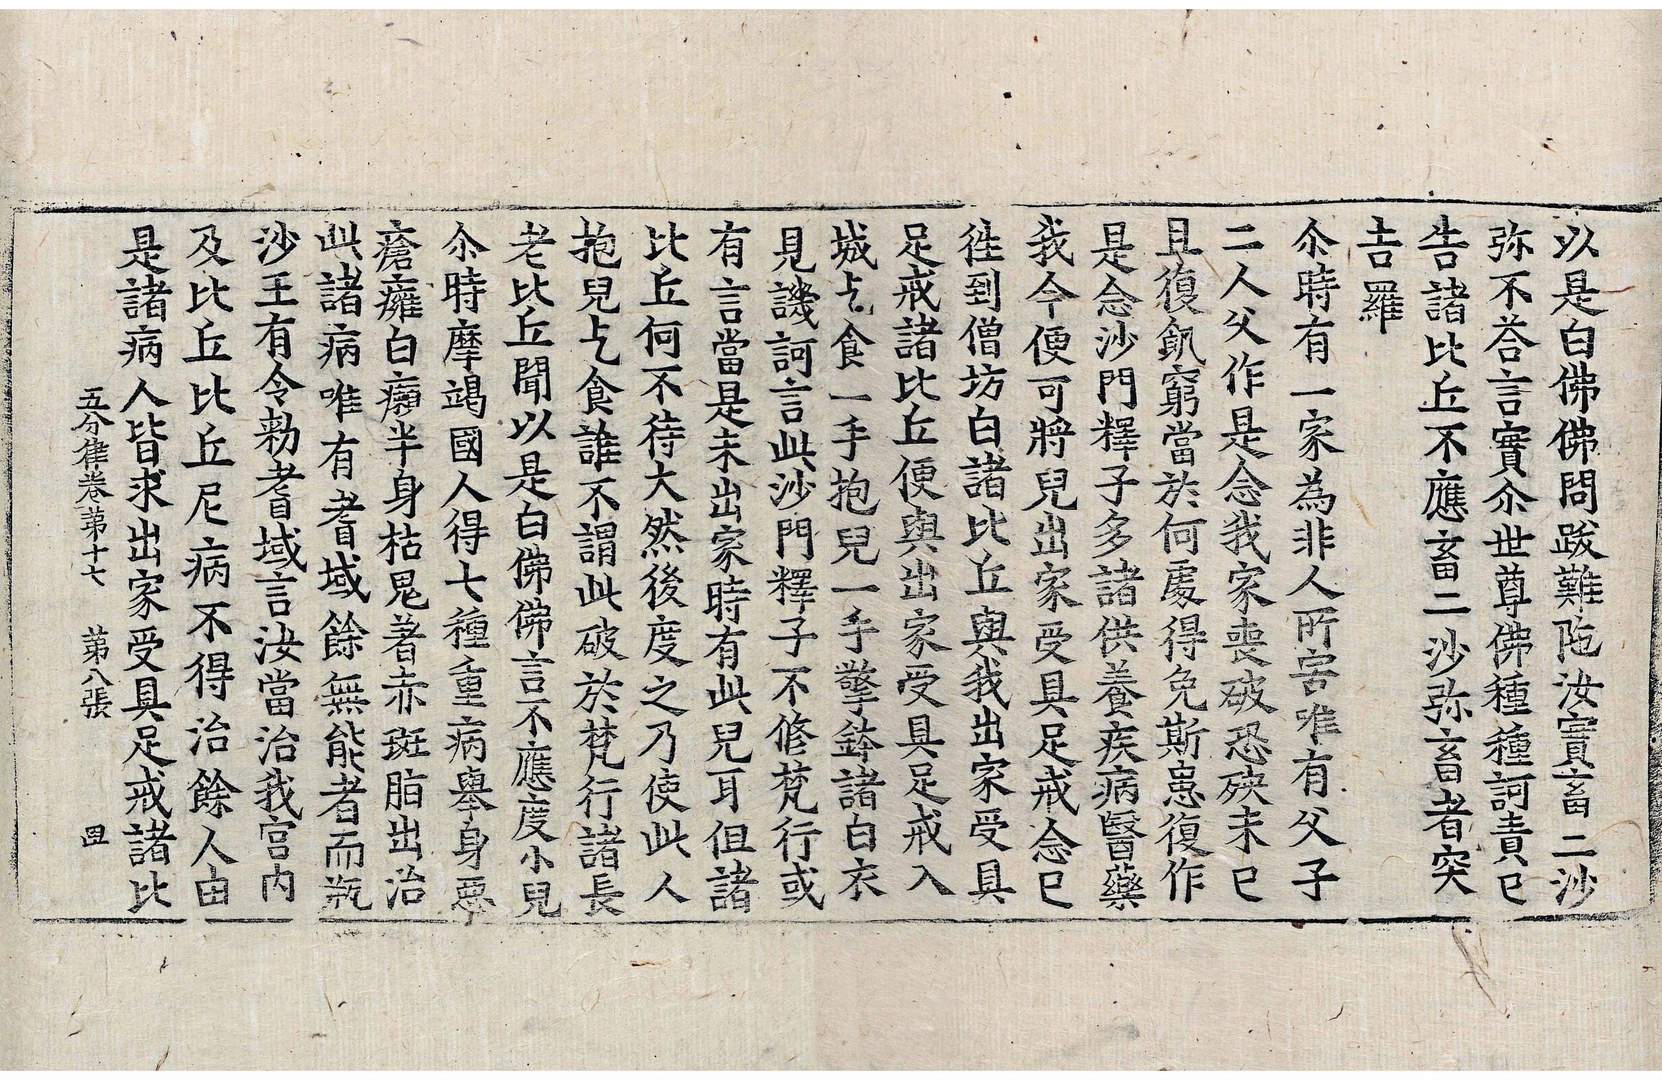 以是白佛佛問跋難陁汝實畜二沙
弥不荅言實尒世尊佛種種訶責已
告諸比丘不應畜二沙弥畜者突
吉羅
尒時有一家為非人所害唯有父子
二人父作是念我家喪破恐殃未已
且復飢窮當於何處得免斯患復作
是念沙門釋子多諸供養疾病醫藥
我今便可將兒出家受具足戒念已
徃到僧坊白諸比丘與我出家受具
足戒諸比丘便與出家受具足戒入
城乞食一手抱兒一手擎鉢諸白衣
見譏訶言此沙門釋子不修梵行或
有言當是未出家時有此兒耳但諸
比丘何不待大然後度之乃使此人
抱兒乞食誰不謂此破於梵行諸長
老比丘聞以是白佛佛言不應度小兒
尒時摩竭國人得七種重病舉身惡
瘡癰白癩半身枯鬼著赤斑脂出治
此諸病唯有耆域餘無能者而瓶
沙王有令勑耆域言汝當治我宮內
及比丘比丘尼病不得治餘人由
是諸病人皆求出家受具足戒諸比
五分律卷第十七 第八張 四